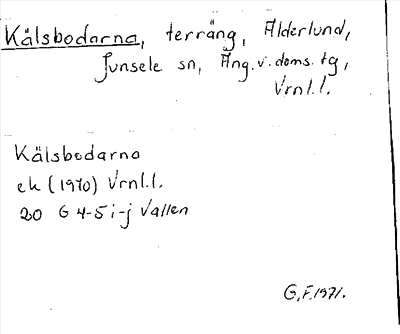 Kälsbodarna, terräng, Älderlund,
Junsele sn, Äng. v. doms. tg,
Vrnl.l.
Kälsbodarna
ek (1970) Vrnl.l.
20 G 4-5 i-j Vallen
G.F. 1971.